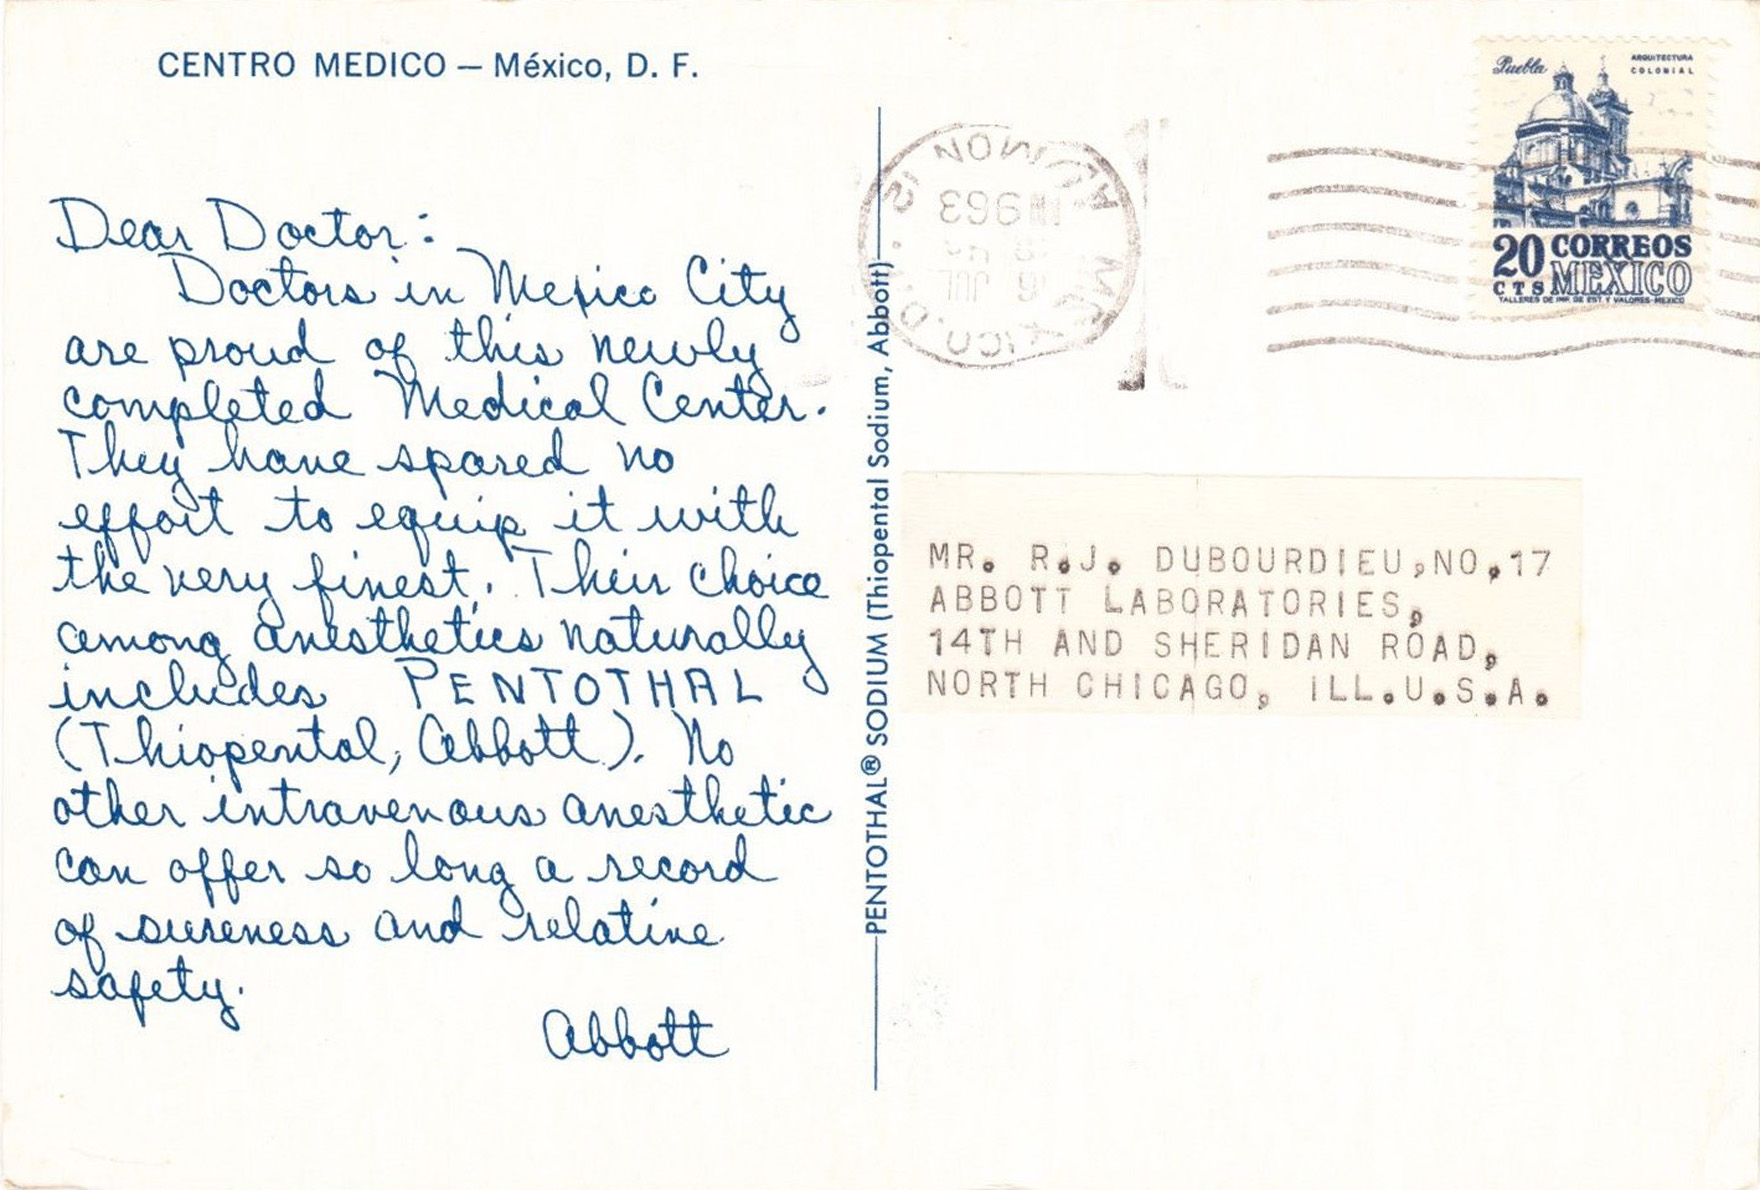 CENTRO MEDICO — México, D. F.
Dear Doctor:
Doctors in Mexico City
are proud of this newly
completed Medical Center.
They have spared no
effort to equip it with
the very finest. Their choice
among anesthetics naturally
includes PENTOTHAL
(Thiopental, Abbott). No
other intravenous anesthetic
can offer so long a record
of sureness and relative
safety.
Abbott
PENTOTHAL® SODIUM (Thiopental Sodium, Abbott)
Puebla
ARQUITECTURA
COLONIAL
20 CTS
CORREOS
MEXICO
TALLERES DE IMP. DE EST. Y VALORES-MEXICO
JUL
963
MR. R.J. DUBOURDIEU,NO.17
ABBOTT LABORATORIES,
14TH AND SHERIDAN ROAD,
NORTH CHICAGO, ILL.U.S.A.